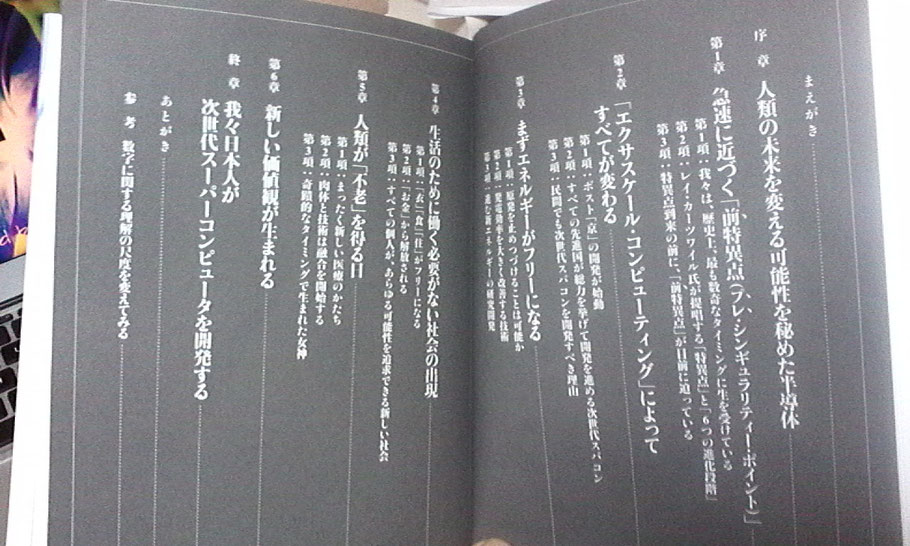 まえがき
序章 人類の未来を変える可能性を秘めた半導体
第1章 急速に近づく「前特異点(プレ・シンギュラリティー・ポイント)」
第1項：我々は、歴史上、最も数奇なタイミングに生を受けている
第2項：レイ・カーツワイル氏が提唱する「特異点」と「6つの進化段階」
第3項：特異点到来の前に、「前特異点」が目前に迫っている
第2章 「エクサスケール・コンピューティング」によって
すべてが変わる
第1項：ポスト「京」の開発が始動
第2項：すべての先進国が総力を挙げて開発を進める次世代スパコン
第3項：民間でも次世代スパコンを開発すべき理由
第3章 まずエネルギーがフリーになる
第1項：原発を止めつづけることは可能か
第2項：発電効率を大きく改善する技術
第3項：進む新エネルギーの研究開発
第4章 生活のために働く必要がない社会の出現
第1項：「衣」「食」「住」がフリーになる
第2項：「お金」から解放される
第3項：すべての個人が、あらゆる可能性を追求できる新しい社会
第5章 人類が「不老」を得る日
第1項：まったく新しい医療のかたち
第2項：肉体と技術は融合を開始する
第3項：奇蹟的なタイミングで生まれた女神
第6章 新しい価値観が生まれる
終章 我々日本人が
次世代スーパーコンピュータを開発する
あとがき
参考 数字に関する理解の尺度を変えてみる